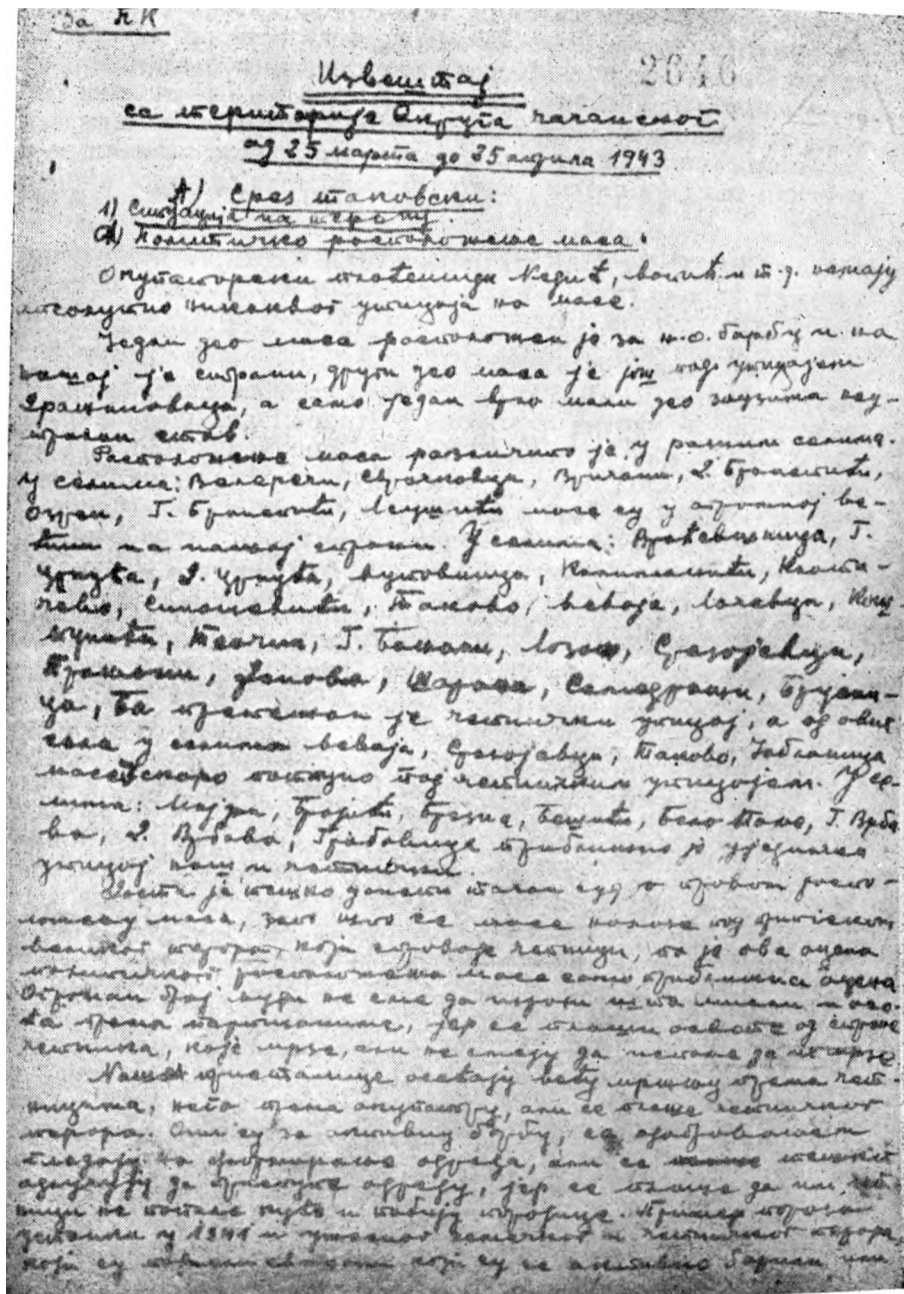 За ПК
2646
Извештај
са територије Округа чачанског
од 25 марта до 25 априла 1943
А) Срез таковски:
1) Ситуација на терену.
а) Политичко расположење маса.
Окупаторски плаћеници Недић, и т.д. немају
апсолутно никаквог утицаја на масе.
Један део маса расположен је за н.о. борбу и на
нашој је страни, други део маса је још под утицајем
Дражиноваца, а само један врло мали део заузима неу-
тралан став.
Расположење маса различито је у разним селима.
У селима: Велеречи, Срачковци, Врнчани, Д. Бранетићи,
Озрем, Г. Бранетићи, Леушићи масе су у огромној ве-
ћини на нашој страни. У селима: Враћевшница, Г.
Црнућа, Д. Црнућа, Бугов­ница, Калиманићи, Клати-
чево, Синошевићи, Таково, Невоја, Лочевци, Кош-
тунићи, Теочин, Г. Бањани, Лозањ, Срезојевци,
Прањани, Шарани, Семедражи, Брусни-
ца, Ба претежан је четнички утицај, а од ових
села у селима Невоја, Срезојевци, Таково, Јабланица
масе скоро потпуно под четничким утицајем. У се-
лима: Мајдан, Бројићи, Брезна, Бешићи, Бело Поље, Г. Врба-
ва, Д. Врбава, Грабовица приближно је уједначен
утицај наш и четнички.
Доста је тешко донети тачан суд о правом распо-
ложењу маса, зато што се масе налазе под притиском
великог терора, који спроводе четници, па је ова оцена
политичког расположења маса само приближна оцена
Огроман број људи не сме да изрази шта мисли и осе-
ћа према партизанима, јер се плаши освете од стране
четника, које мрзе, али не смеју да испоље да их мрзе
Наше присталице осећају већу мржњу према чет-
ницима, него према окупатору, али се плаше четничког
терора. Они су за активну борбу, са одобравањем
гледају на формирање одреда, али се тешко
одлучују да приступе одреду, јер се плаше да им чет-
ници не попале куће и побију породице. Пример пораза
устанка у 1941 и ужасног немачког и четничког терора,
који су који су се активно борили или